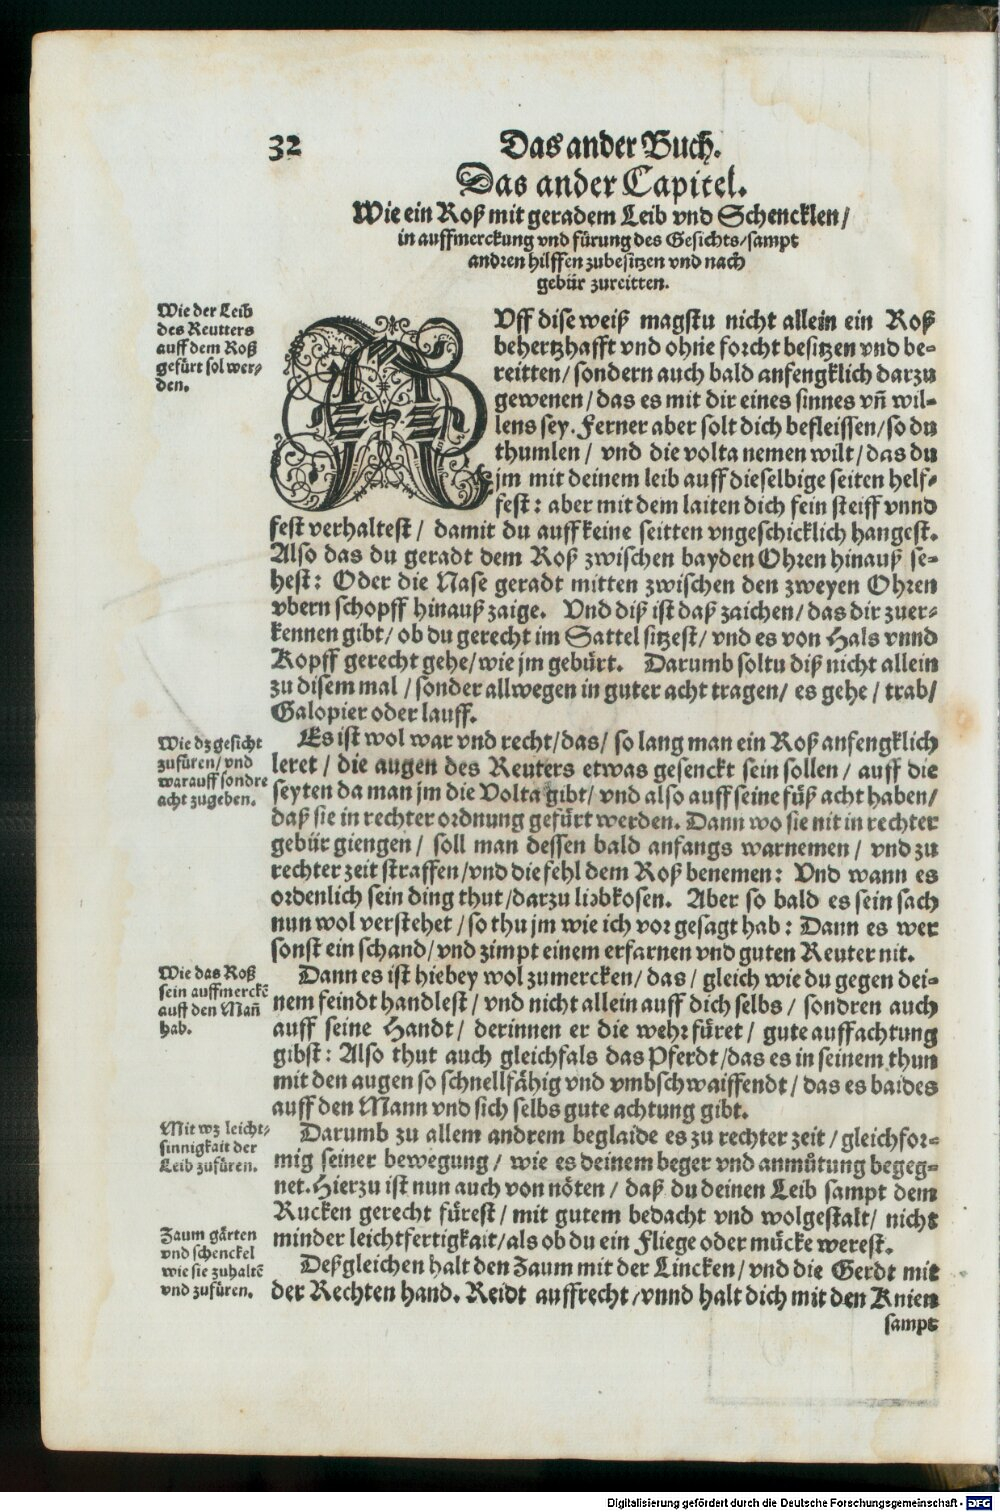 32
Das ander Buch.
Das ander Capitel.
Wie ein Roß mit geradem Leib vnd Schencklen/
in auffmerckung vnd fürung des Gesichts/sampt
andren hilffen zubesitzen vnd nach
gebür zureitten.
Wie der Leib
des Reutters
auff dem Roß
gefürt sol wer/
den.
AVff dise weiß magstu nicht allein ein Roß
behertzhafft vnd ohne forcht besitzen vnd be-
reitten/ sondern auch bald anfengklich darzu
gewenen/ das es mit dir eines sinnes vñ wil-
lens sey. Ferner aber solt dich befleissen/ so du
thumlen/ vnd die volta nemen wilt/ das du
jm mit deinem leib auff dieselbige seiten helf-
fest: aber mit dem laiten dich fein steiff vnnd
fest verhaltest/ damit du auff keine seitten vngeschicklich hangest.
Also das du geradt dem Roß zwischen bayden Ohren hinauß se-
hest: Oder die Nase geradt mitten zwischen den zweyen Ohren
vbern schopff hinauß zaige. Vnd diß ist daß zaichen/ das dir zuer-
kennen gibt/ ob du gerecht im Sattel sitzest/ vnd es von Hals vnnd
Kopff gerecht gehe/ wie jm gebürt. Darumb soltu diß nicht allein
zu disem mal/ sonder allwegen in guter acht tragen/ es gehe/ trab/
Galopier oder lauff.
Wie dz gesicht
zufüren/ vnd
warauff sondre
acht zugeben.
Es ist wol war vnd recht/ das/ so lang man ein Roß anfengklich
leret/ die augen des Reuters etwas gesenckt sein sollen/ auff die
seyten da man jm die Volta gibt/ vnd also auff seine füß acht haben/
daß sie in rechter ordnung gefürt werden. Dann wo sie nit in rechter
gebür giengen/ soll man dessen bald anfangs warnemen/ vnd zu
rechter zeit straffen/ vnd die fehl dem Roß benemen: Vnd wann es
ordenlich sein ding thut/ darzu liebkosen. Aber so bald es sein sach
nun wol verstehet/ so thu jm wie ich vor gesagt hab: Dann es wer
sonst ein schand/ vnd zimpt einem erfarnen vnd guten Reuter nit.
Wie das Roß
sein auffmerckẽ
auff den Mañ
hab.
Dann es ist hiebey wol zumercken/ das/ gleich wie du gegen dei-
nem feindt handlest/ vnd nicht allein auff dich selbs/ sondren auch
auff seine Handt/ derinnen er die wehr füret/ gute auffachtung
gibst: Also thut auch gleichfals das Pferdt/ das es in seinem thun
mit den augen so schnellfähig vnd vmbschwaiffendt/ das es baides
auff den Mann vnd sich selbs gute achtung gibt.
Mit wz leicht/
sinnigkait der
Leib zufüren.
Darumb zu allem andrem beglaide es zu rechter zeit/ gleichfor-
mig seiner bewegung/ wie es deinem beger vnd anmůtung begeg-
net. Hierzu ist nun auch von nöten/ daß du deinen Leib sampt dem
Rucken gerecht fürest/ mit gutem bedacht vnd wolgestalt/ nicht
minder leichtfertigkait/ als ob du ein Fliege oder mücke werest.
Zaum gärten
vnd schenckel
wie sie zuhaltẽ
vnd zufüren.
Deßgleichen halt den Zaum mit der Lincken/ vnd die Gerdt mit
der Rechten hand. Reidt auffrecht/ vnnd halt dich mit den Knien
sampt
Digitalisierung gefördert durch die Deutsche Forschungsgemeinschaft - DFG